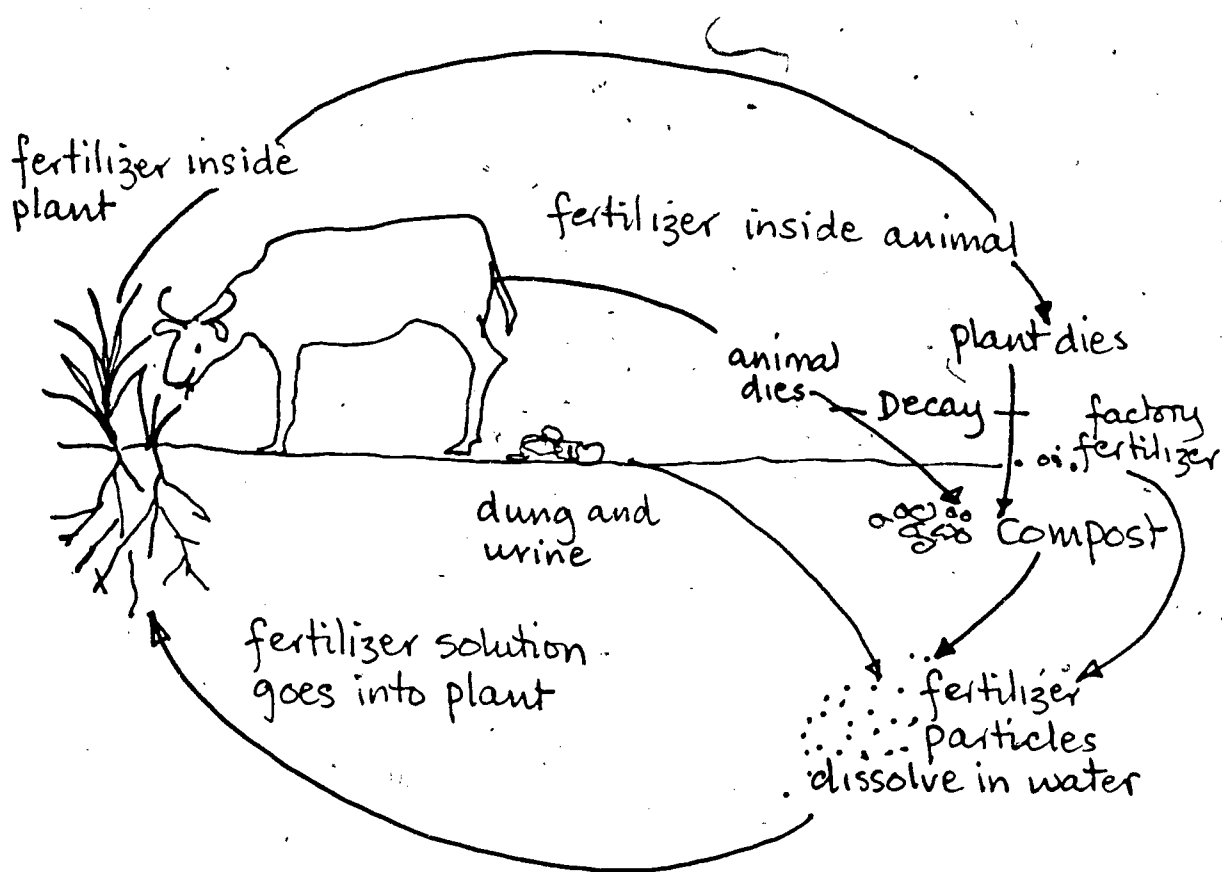 fertilizer inside
plant
fertilizer inside animal
plant dies
animal
dies
Decay
factory
fertilizer
dung and
urine
compost
fertilizer solution
goes into plant
fertilizer
particles
dissolve in water